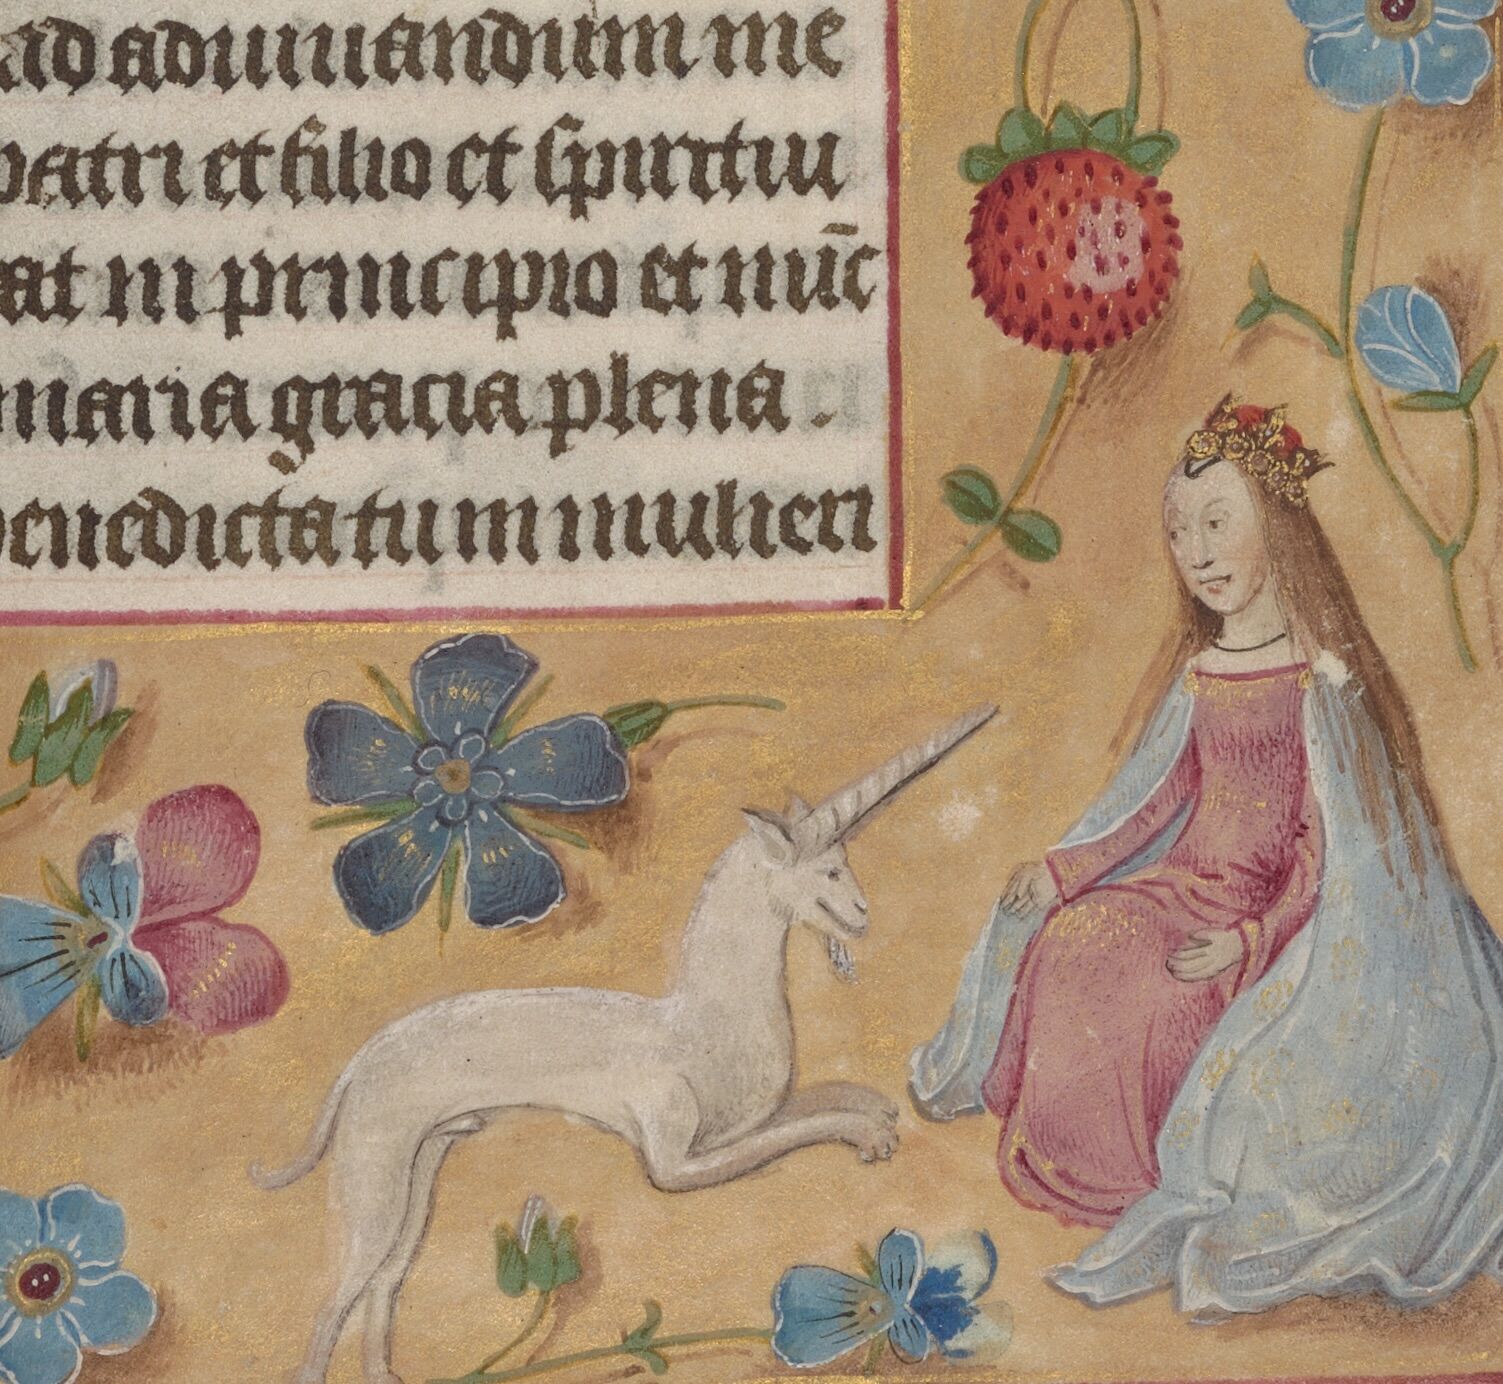 ad adiuuandum me
patri et filio et spiritui
at in principio et nūc
maria gracia plena .
benedicta tu in mulieri